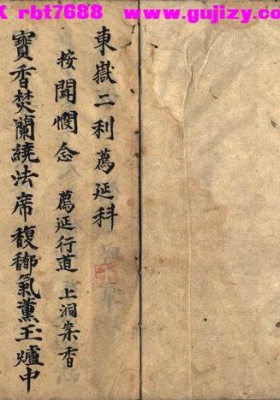 rbt7688 www.gujizy.com
東嶽二利薦延科
按聞憫念 薦延行道 上洞案香
寶香焚蘭繞法席馥鄉氣薰玉爐中